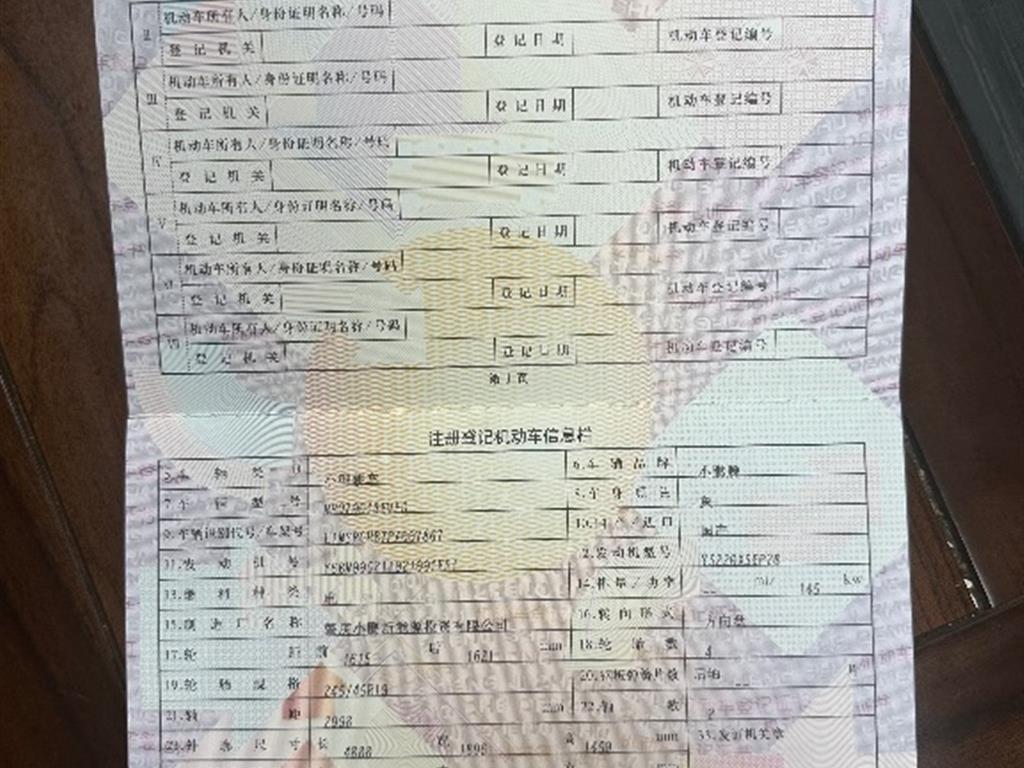 机动车所有人/身份证明名称/号码
登记机关 登记日期 机动车登记编号
III 机动车所有人/身份证明名称/号码
登记机关 登记日期 机动车登记编号
机动车所有人/身份证明名称/号码
登记机关 登记日期 机动车登记编号
V 机动车所有人/身份证明名称/号码
登记机关 登记日期 机动车登记编号
机动车所有人/身份证明名称/号码
登记机关 登记日期 机动车登记编号
VII 机动车所有人/身份证明名称/号码
登记机关 登记日期 机动车登记编号
第1页
注册登记机动车信息栏
5.车辆类型 6.车辆品牌 小鹏牌
7.车辆型号 8.车身颜色 灰
9.车辆识别代号/车架号 10.国产/进口 国产
11.发动机号 12.发动机型号
13.燃料种类 电 14.排量/功率 -- ml/ 145 kw
15.制造厂名称 肇庆小鹏新能源投资有限公司 16.转向形式 方向盘
17.轮距 前 1615 后 1621 mm 18.轮胎数 4
19.轮胎规格 245/45R19 20.钢板弹簧片数 后轴 -- 片
21.轴距 2998 mm 22.轴数 2
23.外廓尺寸 长 4888 宽 1896 高 1450 mm 33.发证机关章